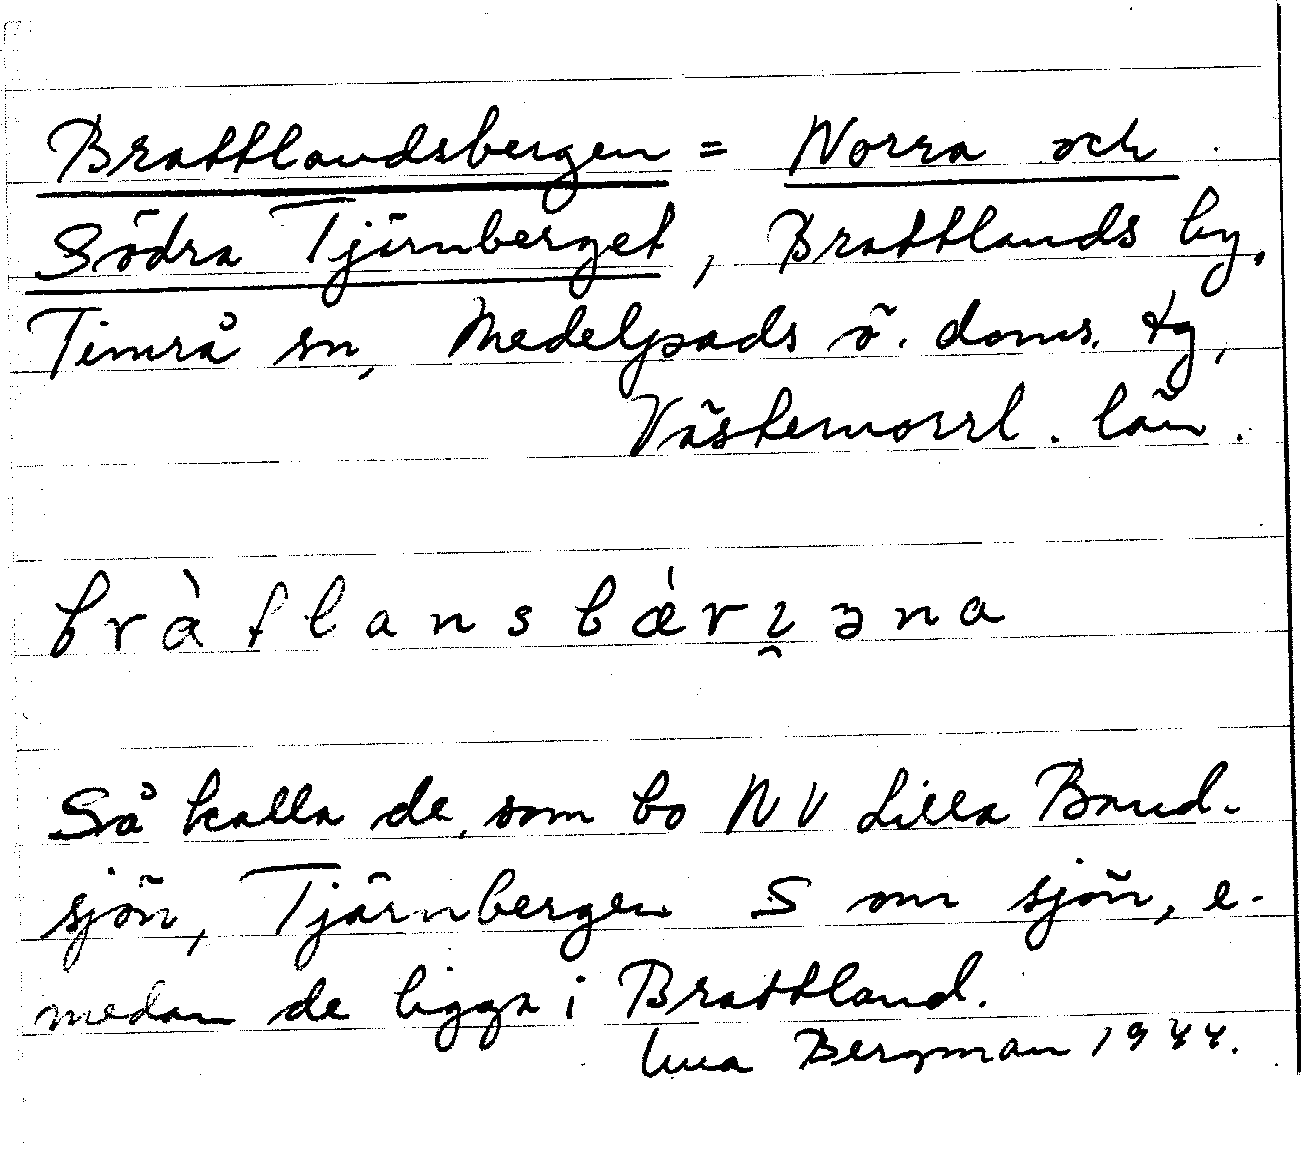 Brattlandsbergen = Norra och
Södra Tjärnberget, Brattlands by.
Timrå sn, Medelpads ö. doms. tg,
Västernorrl. län.
bràtlansbǽrɀ̯əna
Så kalla de, som bo NV Lilla Band-
sjön, Tjärnbergen S om sjön, e-
medan de ligga i Brattland.
Bergman 1944.